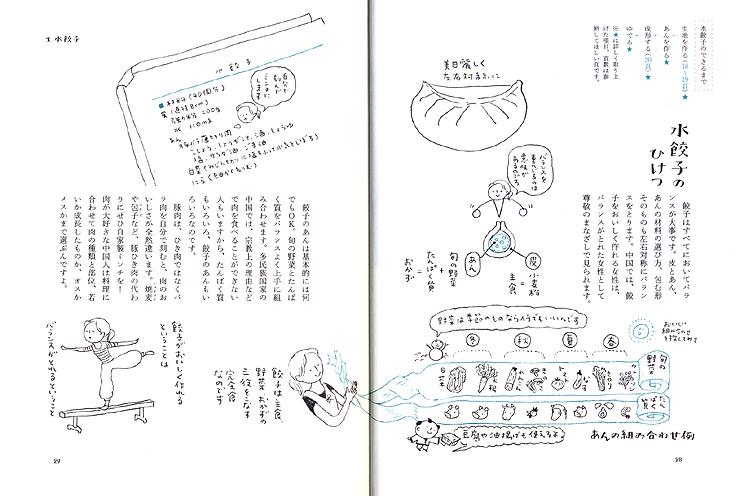 水餃子のできるまで
生地を作る(18〜19頁)★
あんを作る★
成形する(20頁)★
ゆでる★
※★は詳しく取り上
げた項目。頁数は参
照してほしい頁です。
水餃子の
ひけつ
餃子はすべてにおいてバラ
ンスが大事です。皮とあん、
あんの材料の選び方、包む形
そのものも左右対称にバラン
スをとります。中国では、餃
子をおいしく作れる女性は、
バランスがとれた女性として
尊敬のまなざしで見られます。
美目麗しく
左右対称に
バランスを
意味が
あるのである
皮
小麦粉
主食
あん
旬の野菜
+
たんぱく質
おかず
野菜は季節のものなら何でもいいんです
冬
秋
夏
春
旬の野菜
たんぱく質
白菜
大根
豆腐や油揚げも使えるよ
あんの組み合わせ例
28
生 水餃子
水餃子
自分で
ミンチに
します
■材料(40個分)
皮(直径8cm)
強力粉 200g
水 110ml
あん
豚バラ薄切り肉
こしょう、しょうが汁、酒、しょうゆ
塩、サラダ油、ごま油
餃子のあんは基本的には何
でもOK。旬の野菜とたんぱ
く質をバランスよく上手に組
み合わせます。多民族国家の
中国では、宗教上の理由など
で肉を食べることができない
人もいますから、たんぱく質
もいろいろ、餃子のあんもい
ろいろなのです。
豚肉は、ひき肉ではなくバ
ラ肉を自分で刻むと、肉のお
いしさが全然違います。焼麦
や包子など、豚ひき肉の代わ
りにぜひ自家製ミンチを!
肉が大好きな中国人は料理に
合わせて肉の種類と部位、若
いか成長したものか、オスか
メスかまで選ぶんですよ。
餃子は主食、
野菜、おかずの
三役をこなす
完全食
なのです
餃子がおいしく作れる
ということは
バランスがとれるということ
29